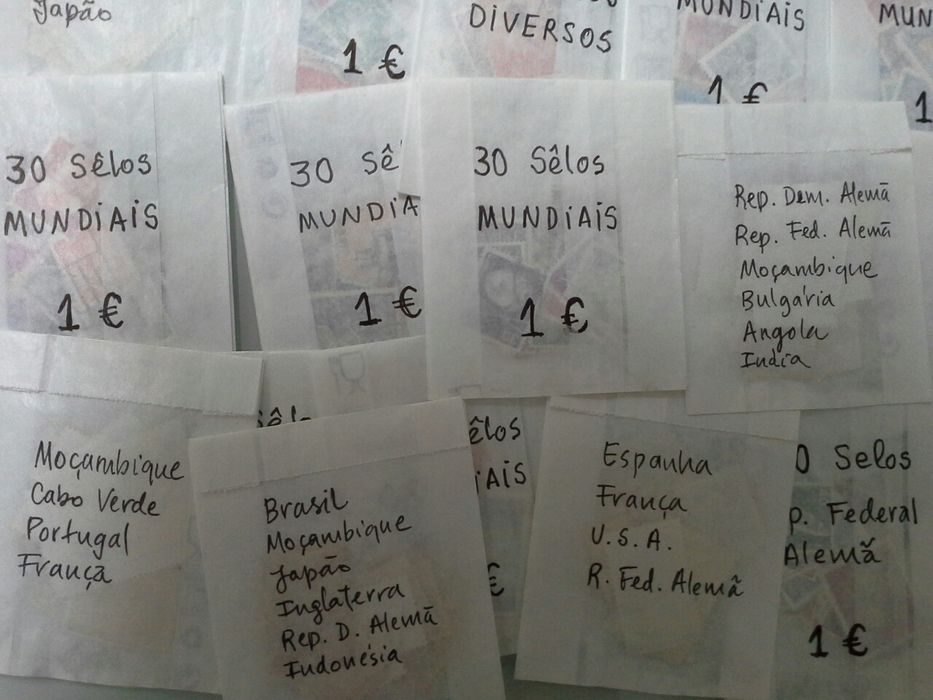 Japão
1 €
DIVERSOS
MUNDIAIS
1 €
MUN
1
30 Sêlos
MUNDIAIS
1 €
30 Sê
MUNDIA
1 €
30 Sêlos
MUNDIAIS
1 €
Rep. Dem. Alemã
Rep. Fed. Alemã
Moçambique
Bulgária
Angola
India
Moçambique
Cabo Verde
Portugal
França
sêlo
Brasil
Moçambique
Japão
Inglaterra
Rep. D. Alemã
Indonésia
êlos
IAIS
€
Espanha
França
U.S.A.
R. Fed. Alemã
0 Selos
p. Federal
Alemã
1 €